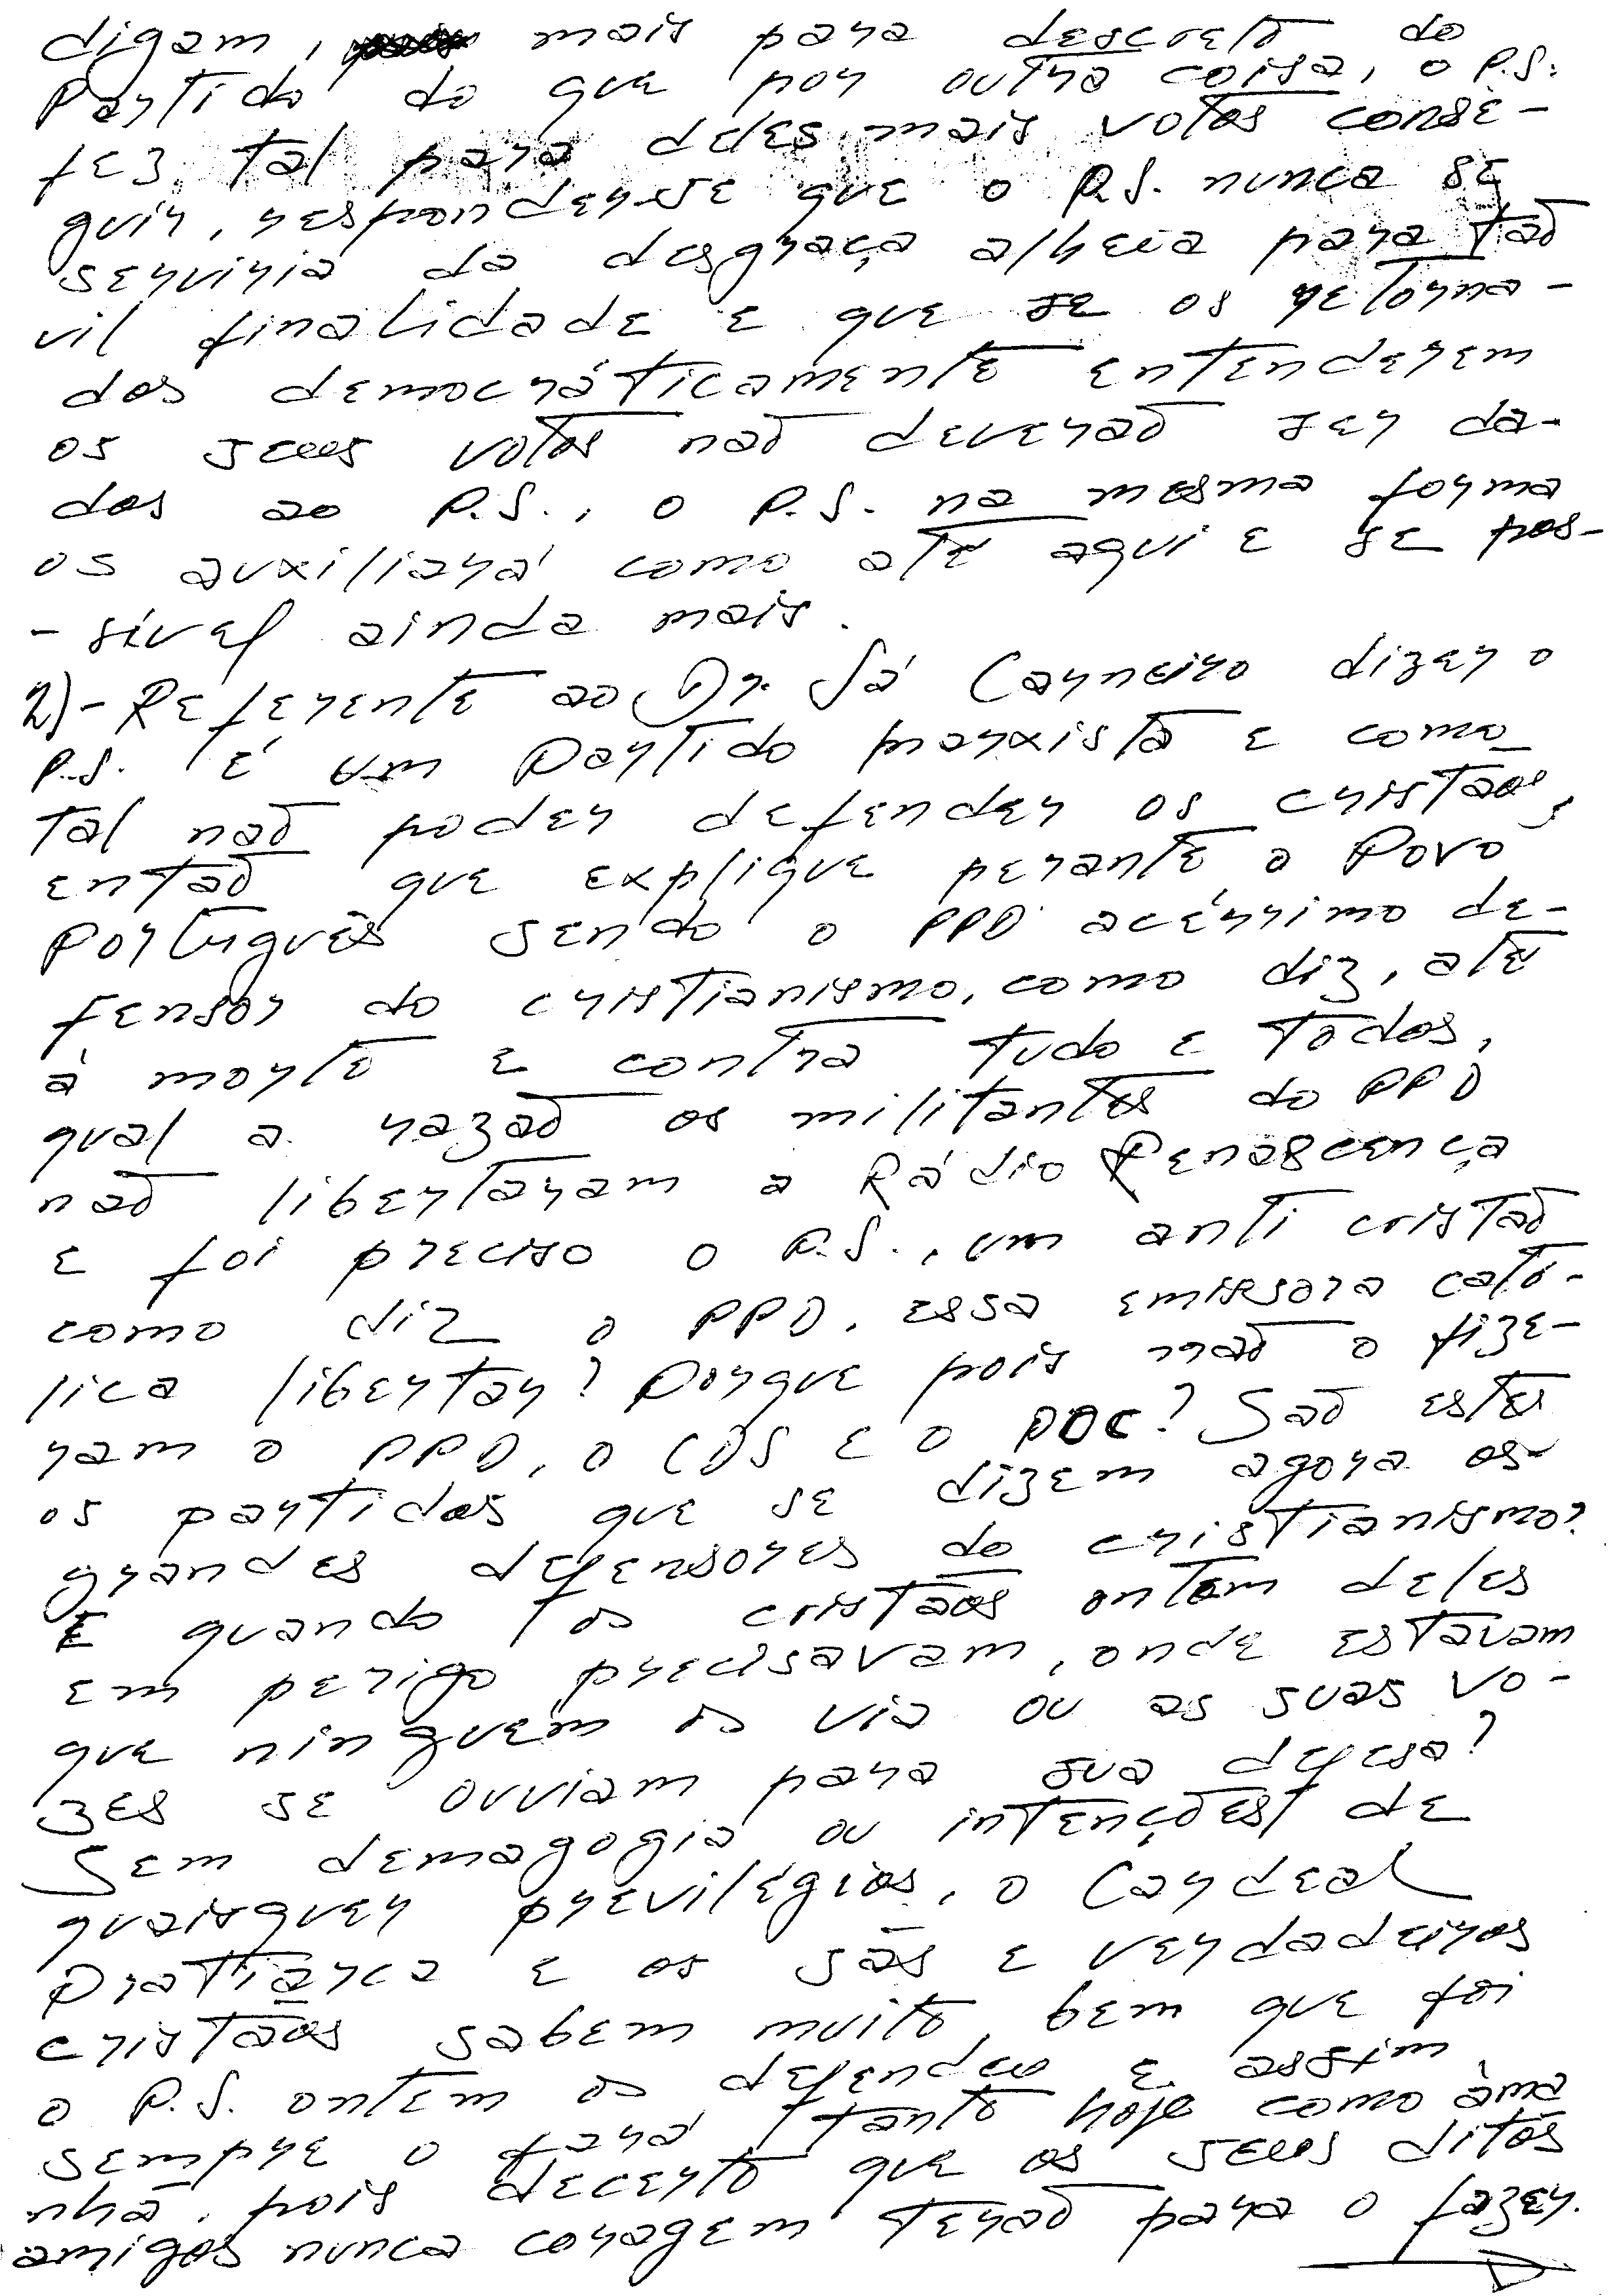 digam, mais para descretõ do
Partido do que por outra coisa, o P.S.
fez tal para deles mais votos conse-
guir, responder-se que o P.S. nunca se
serviria da desgraça alheia para tão
vil finalidade e que se os retorna-
dos democráticamente entenderem
os seus votos não deverão ser da-
dos ao P.S., o P.S. na mesma forma
os auxiliará como até aqui e se pos-
-sível ainda mais.
2)- Referente ao Dr. Sá Carneiro dizer o
P.S. é um Partido marxista e como
tal não poder defender os cristãos,
então que explique perante o Povo
Português sendo o PPD acérrimo de-
fensor do cristianismo, como diz, até
à morte e contra tudo e todos,
qual a razão os militantes do PPD
não libertaram a Rádio Renascença
e foi preciso o P.S., um anti cristão
como diz o PPD, essa emissora cató-
lica libertar? Porque pois não o fize-
ram o PPD, o CDS e o PDC? São estes
os partidos que se dizem agora os
grandes defensores do cristianismo?
E quando os cristãos ontem deles
em perigo precisavam, onde estavam
que ninguem os via ou as suas vo-
zes se ouviam para sua defesa?
Sem demagogia ou intenções de
quaisquer previlégios, o Cardeal
Patriarca e os sãs e verdadeiros
cristãos sabem muito bem que foi
o P.S. ontem os defendeu e assim
sempre o fará tanto hoje como àma
nhã, pois decerto que os seus ditos
amigos nunca coragem terão para o fazer.